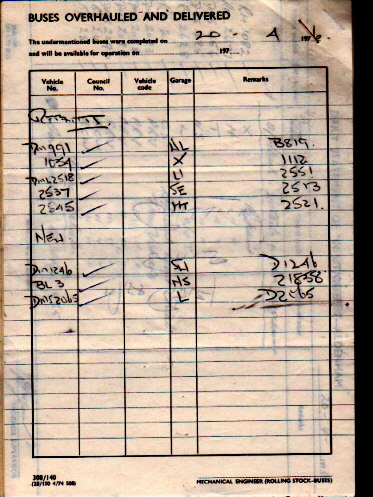 BUSES OVERHAULED AND DELIVERED
The undermentioned buses were completed on 20 - 4 1976
and will be available for operation on 197
Vehicle No. Council No. Vehicle code Garage Remarks
DM991 ✓ AL B819.
1054 ✓ X 1112
DML2518 ✓ 2551
2537 ✓ SE 2513
2545 ✓ HT 2521.
NEW
DM1246 ✓ SW D1246
BL 3 ✓ NS 21838
DMS2065 ✓ L D2065
308/140
(25/150 4/74 508)
MECHANICAL ENGINEER (ROLLING STOCK-BUSES)